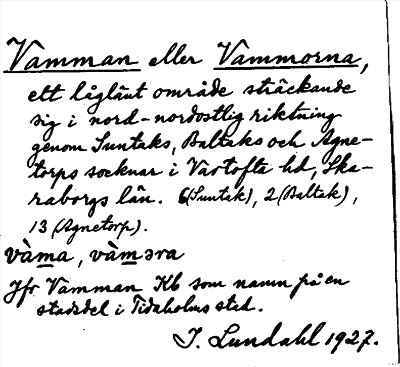 Vamman eller Vammorna,
ett låglänt område sträckande
sig i nord-nordostlig riktning
genom Suntaks, Baltaks och Agne-
torps socknar i Vartofta hd, Ska-
raborgs län. 6 (Suntak), 2 (Baltak),
13 (Agnetorp).
vàma, vàməra
Jfr Vamman Kb som namn på en
stadsdel i Tidaholms stad.
I. Lundahl 1927.